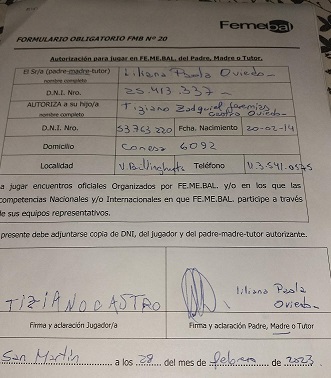 Femebal
FORMULARIO OBLIGATORIO FMB Nº 20
Autorización para jugar en FE.ME.BAL. del Padre, Madre o Tutor.
El Sr/a (padre-madre-tutor) nombre completo Liliana Paola Oviedo
D.N.I. Nro. 25.413.337
AUTORIZA a su hijo/a nombre completo Tiziano Zadquiel Jeremias Castro Oviedo
D.N.I. Nro. 53763220 Fcha. Nacimiento 20-02-14
Domicilio Conesa 6092
Localidad V. Ballinghurst Teléfono
a jugar encuentros oficiales Organizados por FE.ME.BAL. y/o en los que las
competencias Nacionales y/o Internacionales en que FE.ME.BAL. participe a través
de sus equipos representativos.
presente debe adjuntarse copia de DNI, del jugador y del padre-madre-tutor autorizante.
TIZIANO CASTRO
Liliana Paola
Oviedo
Firma y aclaración Jugador/a
Firma y aclaración Padre, Madre o Tutor
San Martín a los 28 del mes de febrero de 2023